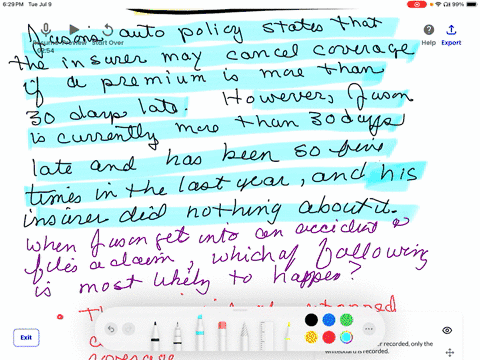 6:29 PM Tue Jul 9
99%
Jason's auto policy states that
Start Over
02:54
Help
Export
the insurer may cancel coverage
if a premium is more than
30 days late. However, Jason
is currently more than 30 days
late and has been so five
times in the last year, and his
insurer did nothing about it.
When Jason get into an accident &
files a claim, which of following
is most likely to happen?
Exit
recorded, only the
whiteboard is recorded.
coverage